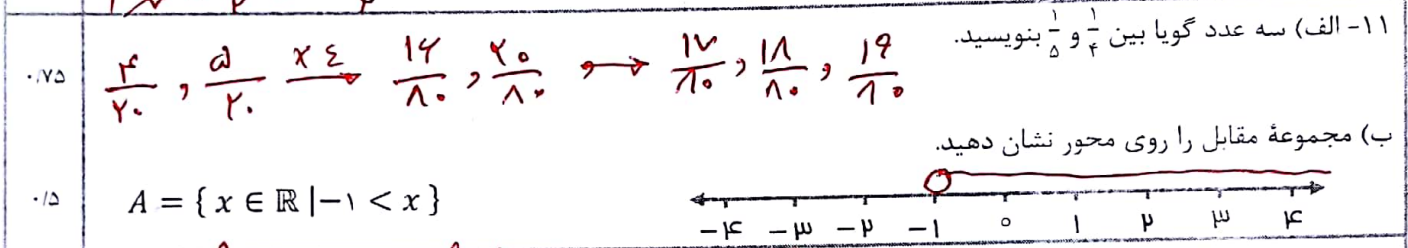 ۱۱- الف) سه عدد گویا بین ۱/۴ و ۱/۵ بنویسید.
۴/۲۰ , ۵/۲۰ ×۴→ ۱۶/۸۰ , ۲۰/۸۰ → ۱۷/۸۰ , ۱۸/۸۰ , ۱۹/۸۰
۰/۷۵
ب) مجموعهٔ مقابل را روی محور نشان دهید.
A = { x ∈ ℝ | −۱ < x }
−۴ −۳ −۲ −۱ ۰ ۱ ۲ ۳ ۴
۰/۵